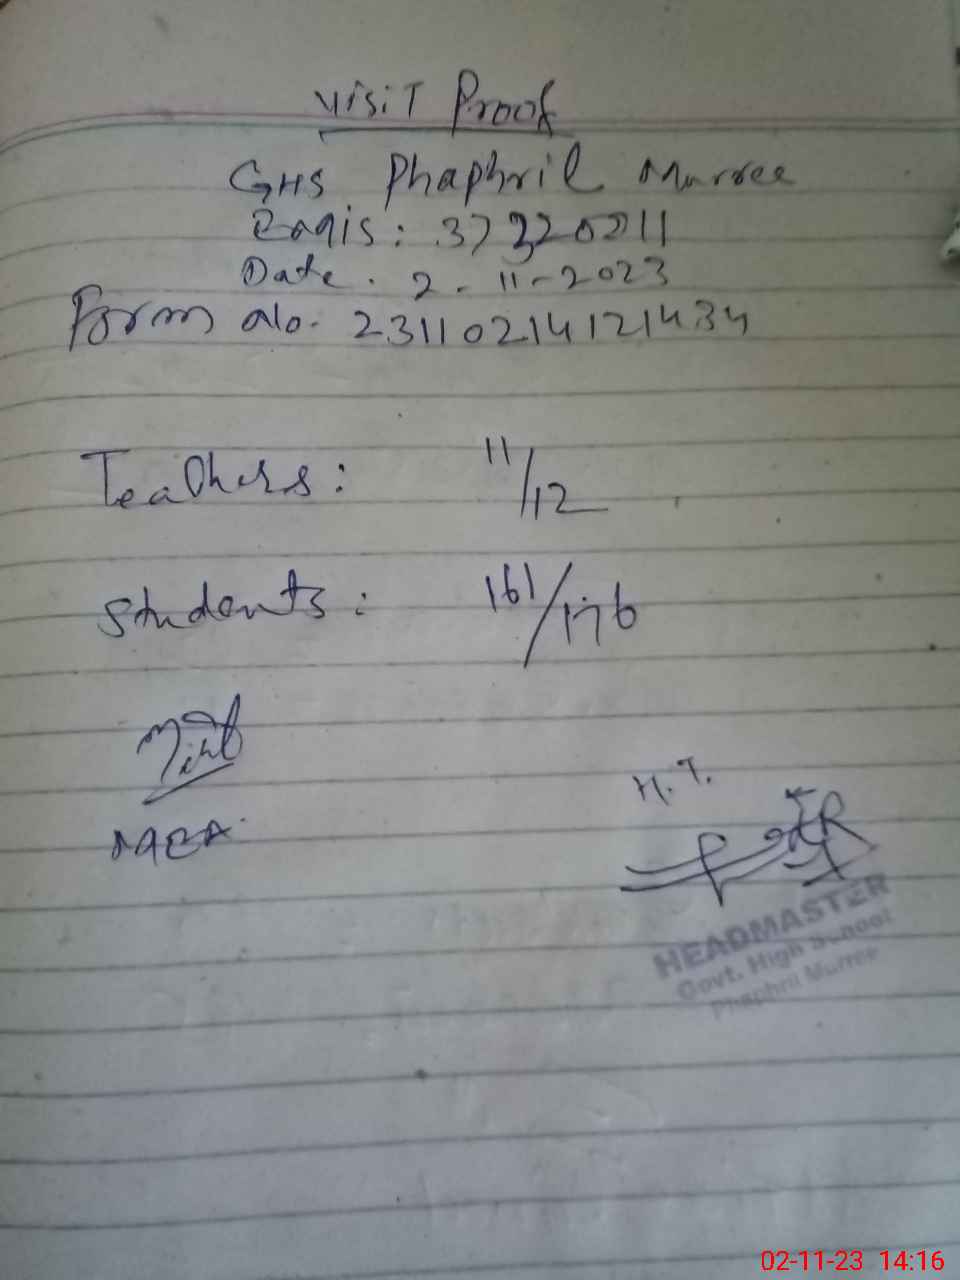 Visit Proof
GHS Phaphril Murree
Emis: 37320211
Date. 2-11-2023
Form No. 23110214121434
Teachers: 11/12
Students: 161/176
MEA
H.T.
HEADMASTER
Govt. High School
Phaphril Murree
02-11-23 14:16